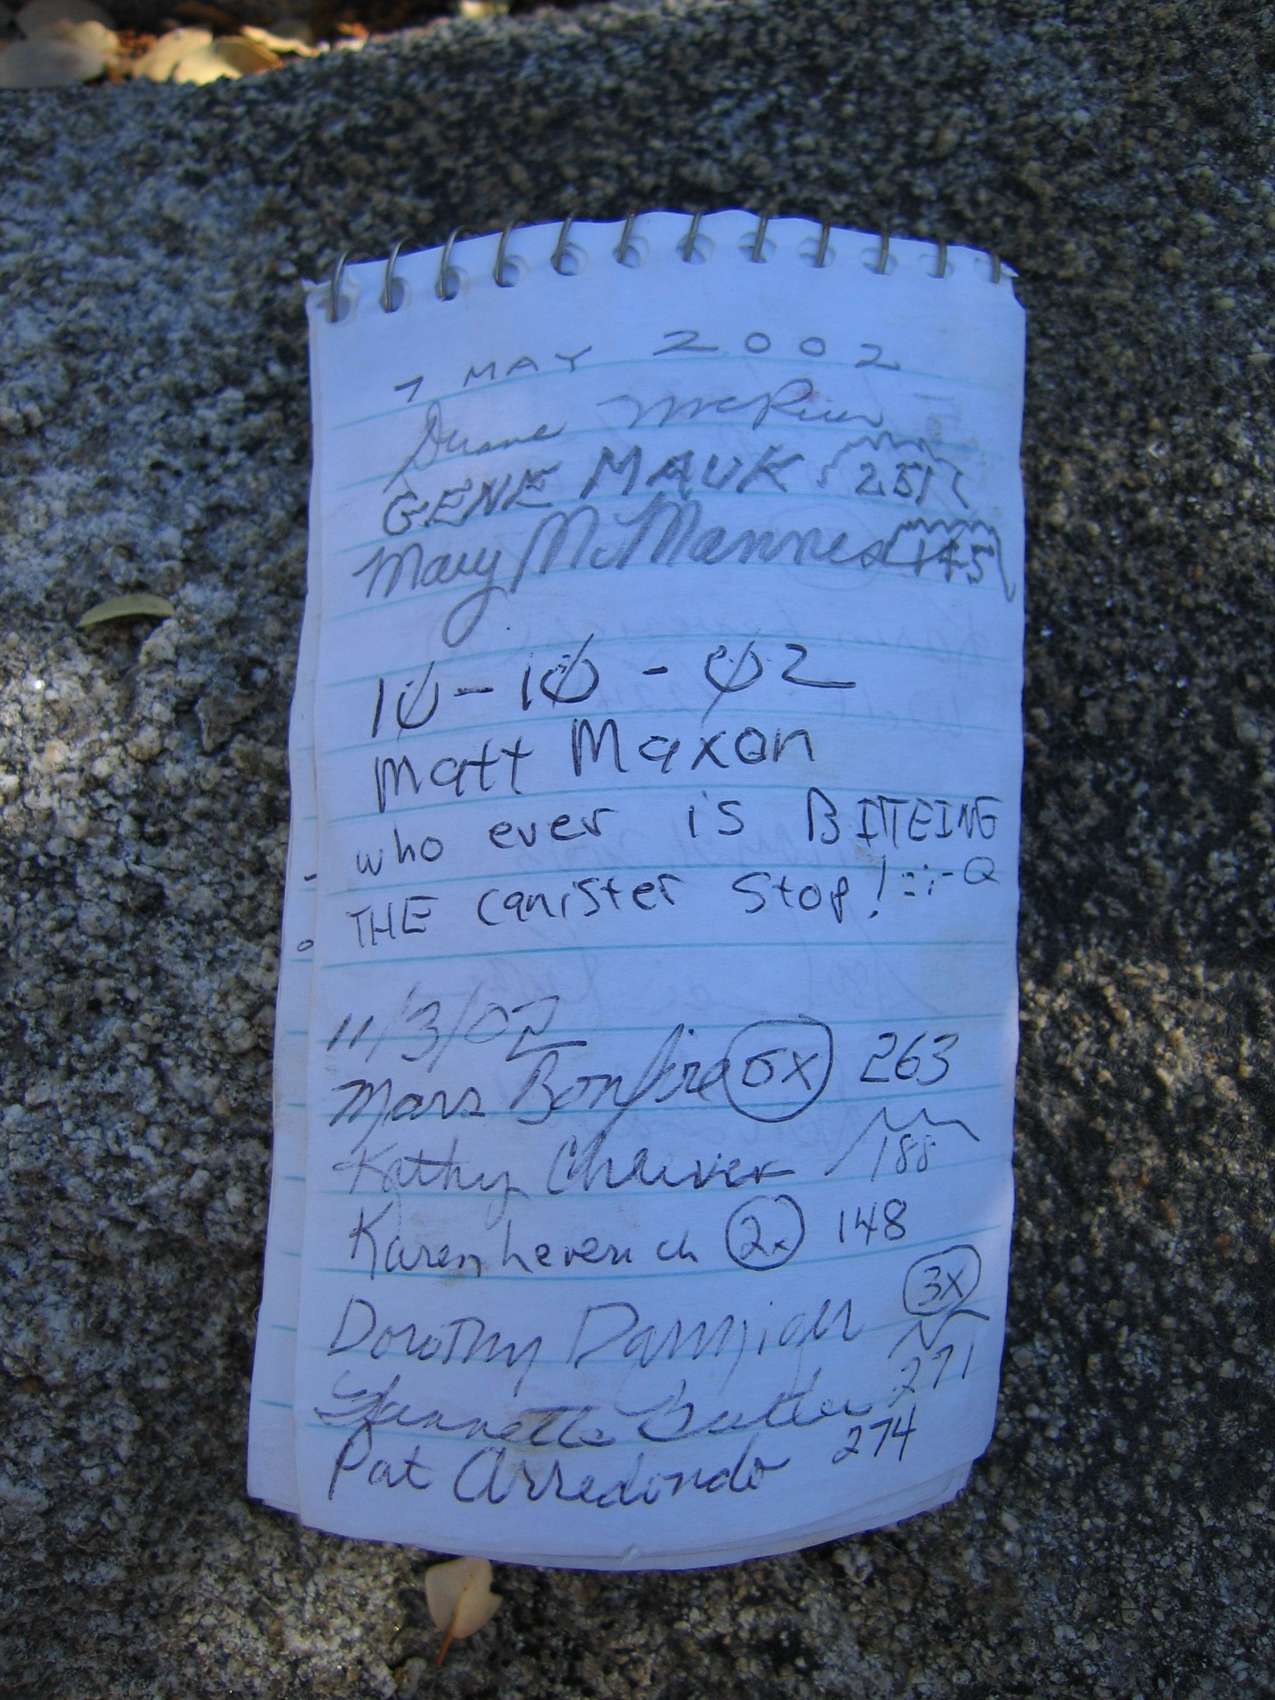 7 MAY 2002
Duane
GENE MAUK 251
Mary McMannes 145
10-10-02
Matt Maxon
who ever is BITEING
THE canister stop! =;-Q
11/3/02
Mars Bonfire 6x 263
Kathy 188
Karen Leverich 2x 148
Dorothy 3x
Butler 271
Pat Arredondo 274